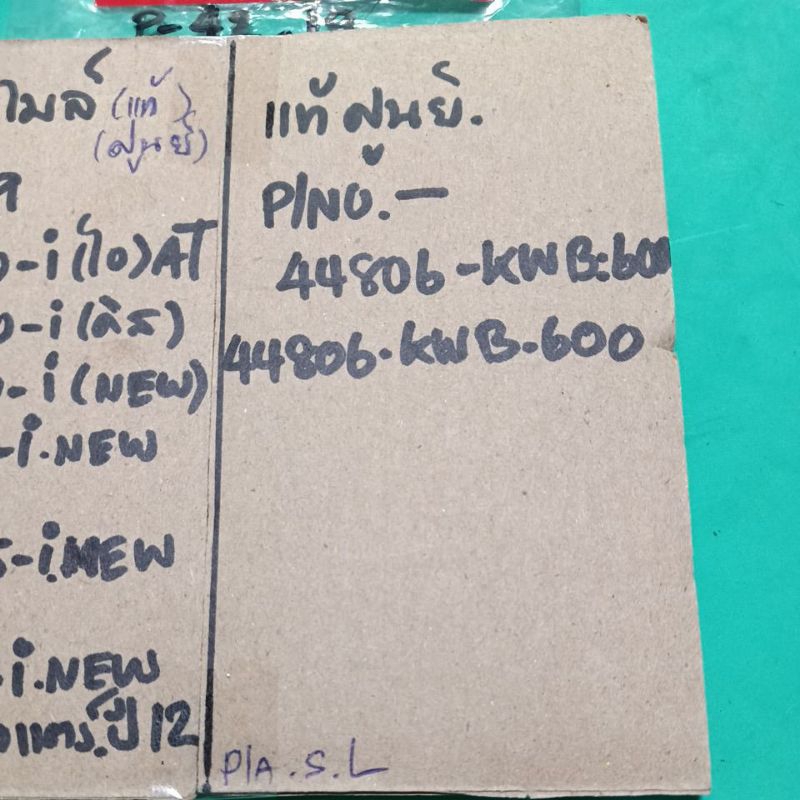 ไมล์ (แท้)
(ศูนย์)
-i (ไอ) AT
-i (ดิส)
-i (NEW)
-i.NEW
-i.NEW
-i.NEW
ปี 12
แท้ศูนย์.
P/NO.—
44806-KWB-600
44806-KWB-600
P/A.S.L